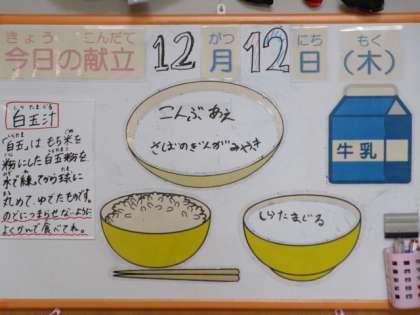 きょう こんだて がつ にち もく
今日の献立 12月12日(木)
しらたまじる
白玉汁
「白玉」は もち米を
粉にした白玉粉を
水で練ってから球に
丸めて、ゆでたものです。
のどにつまらせないように
よくかんで食べてね。
こんぶあえ
さばのぎんがみやき
しらたまじる
牛乳